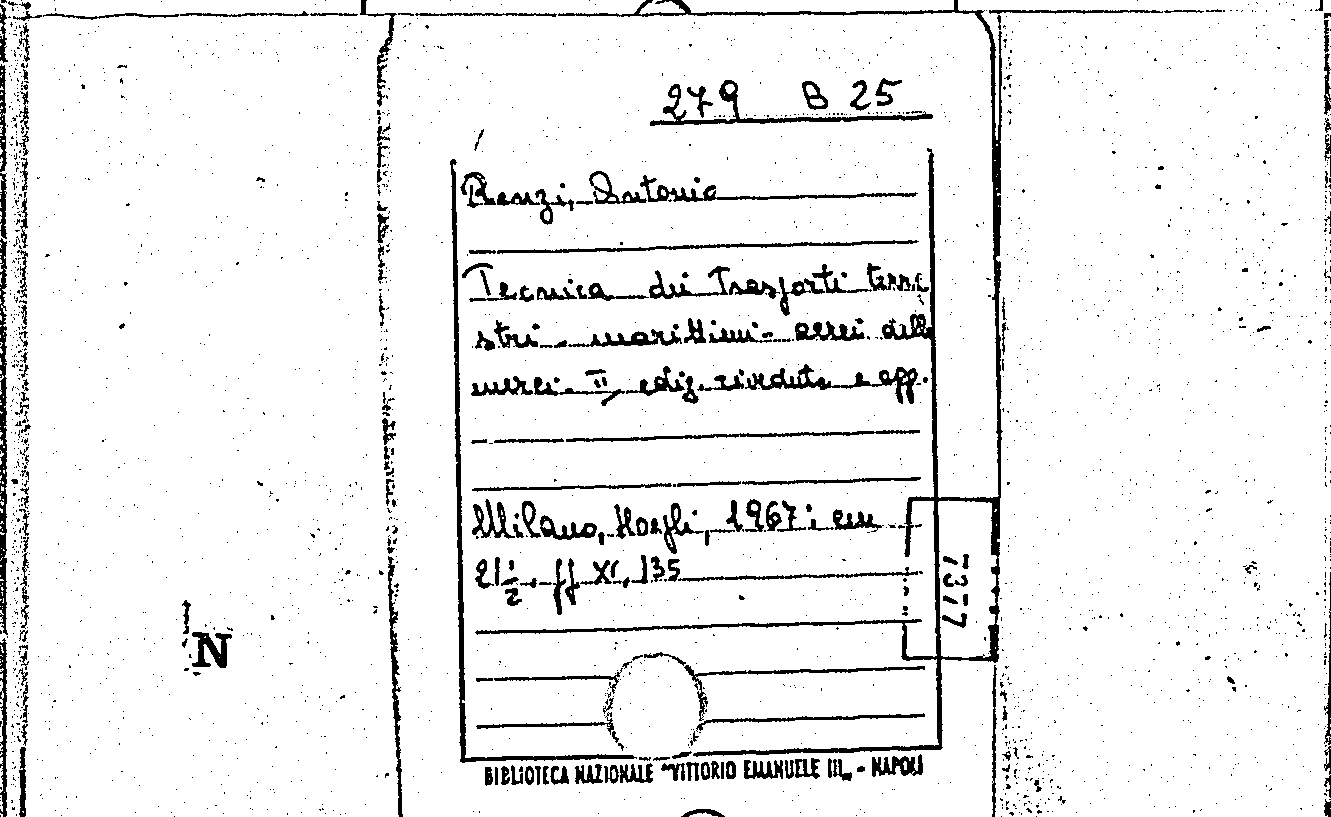 279 B 25
Renzi, Antonio
Tecnica dei Trasporti terre
stri - marittimi - aerei delle
merci - II, ediz. riveduta e app.
Milano, Hoepli, 1967; cm
21 1/2, pp XI, 135
7377
N
BIBLIOTECA NAZIONALE "VITTORIO EMANUELE III„ - NAPOLI